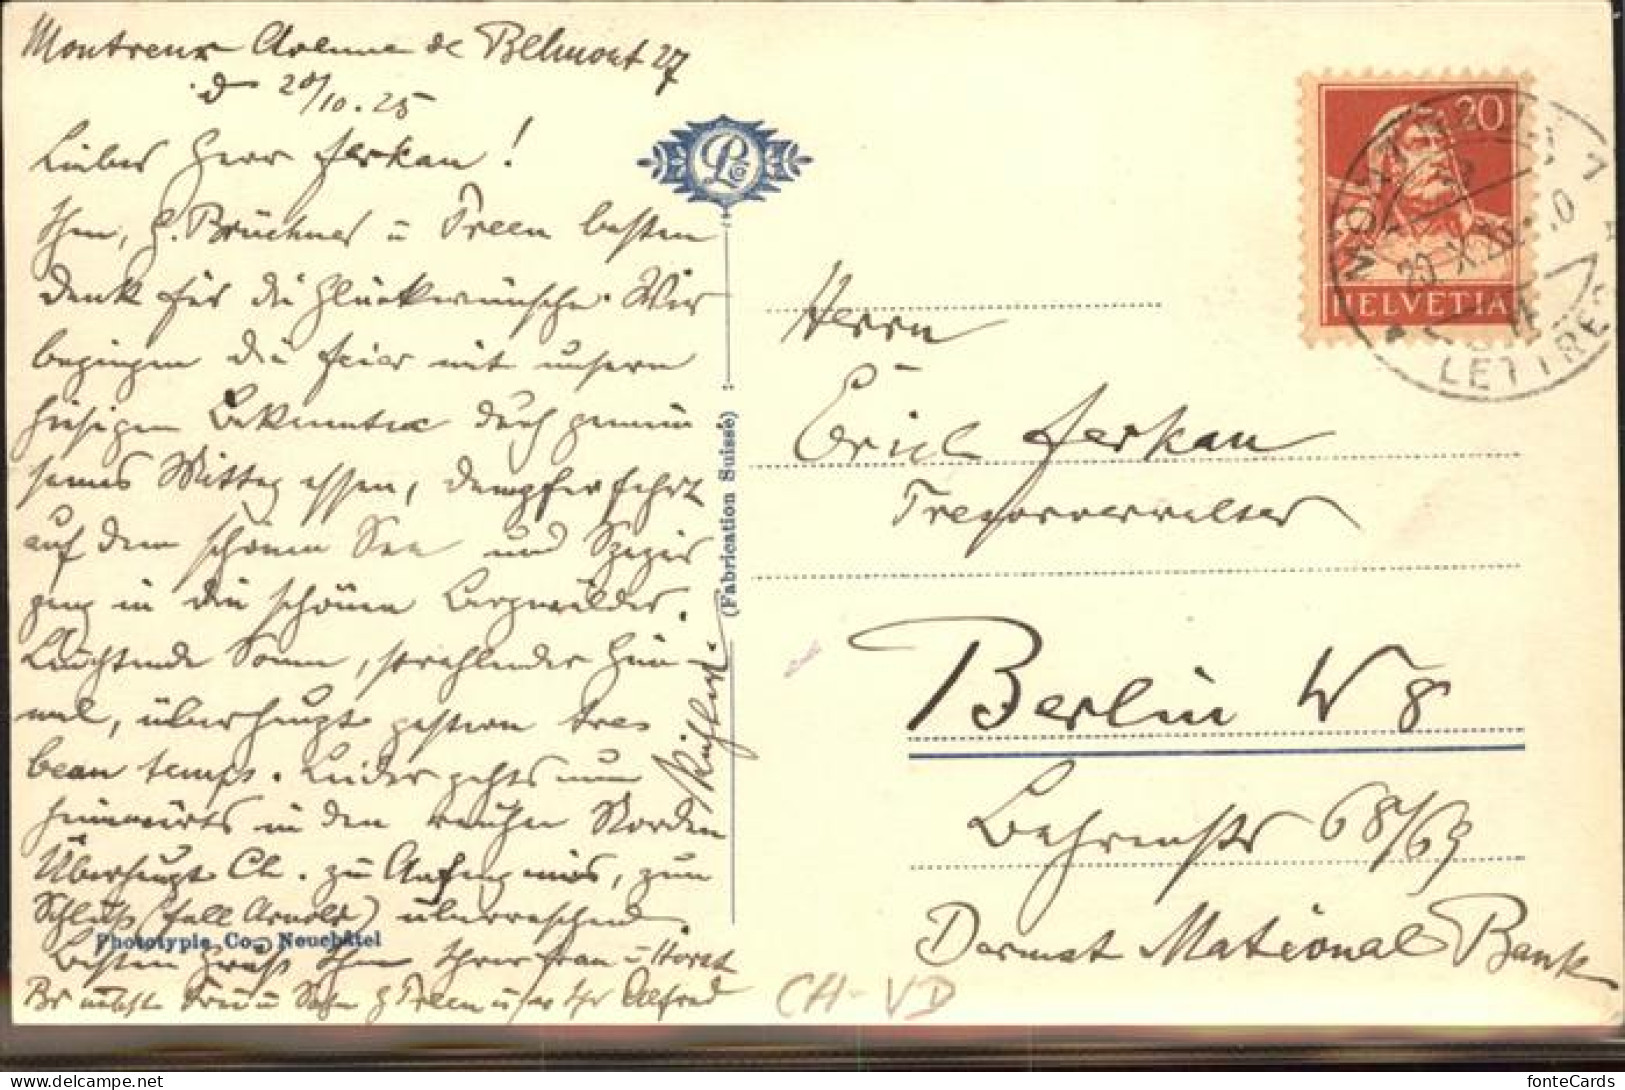 Montreux Avenue de Belmont 27
d 20/10.25
Lieber Herr Ferkau!
Ihm, H. Brückner u Treen besten
Dank für die Glückwünsche. Wir
begingen die Feier mit unsern
hiesigen Bekannten durch gemein-
sames Mittagessen, Dampferfahrt
auf dem schönen See und Spazier
gang in die schönen Bergwälder.
Leuchtende Sonne, strahlender Him-
mel, überhaupt gestern tres
beau temps. Leider gehts nun
heimwärts in den rauhen Norden
Überhaupt Ch. zu Anfang mies, zum
Schluß (fall Arnold) überraschend.
Besten Gruß Ihr Ihrer Frau u Horst
Frau u Sohn H Treen u Alfred
PLCo
(Fabrication Suisse)
Phototypie Co., Neuchâtel
20
HELVETIA
MONTREUX 1
20.X.25
LETTRES
Herrn
Erich Ferkau
Tresorverwalter
Berlin W 8
Behrenstr 68/69
Darmst National Bank
CH-VD
fonteCards